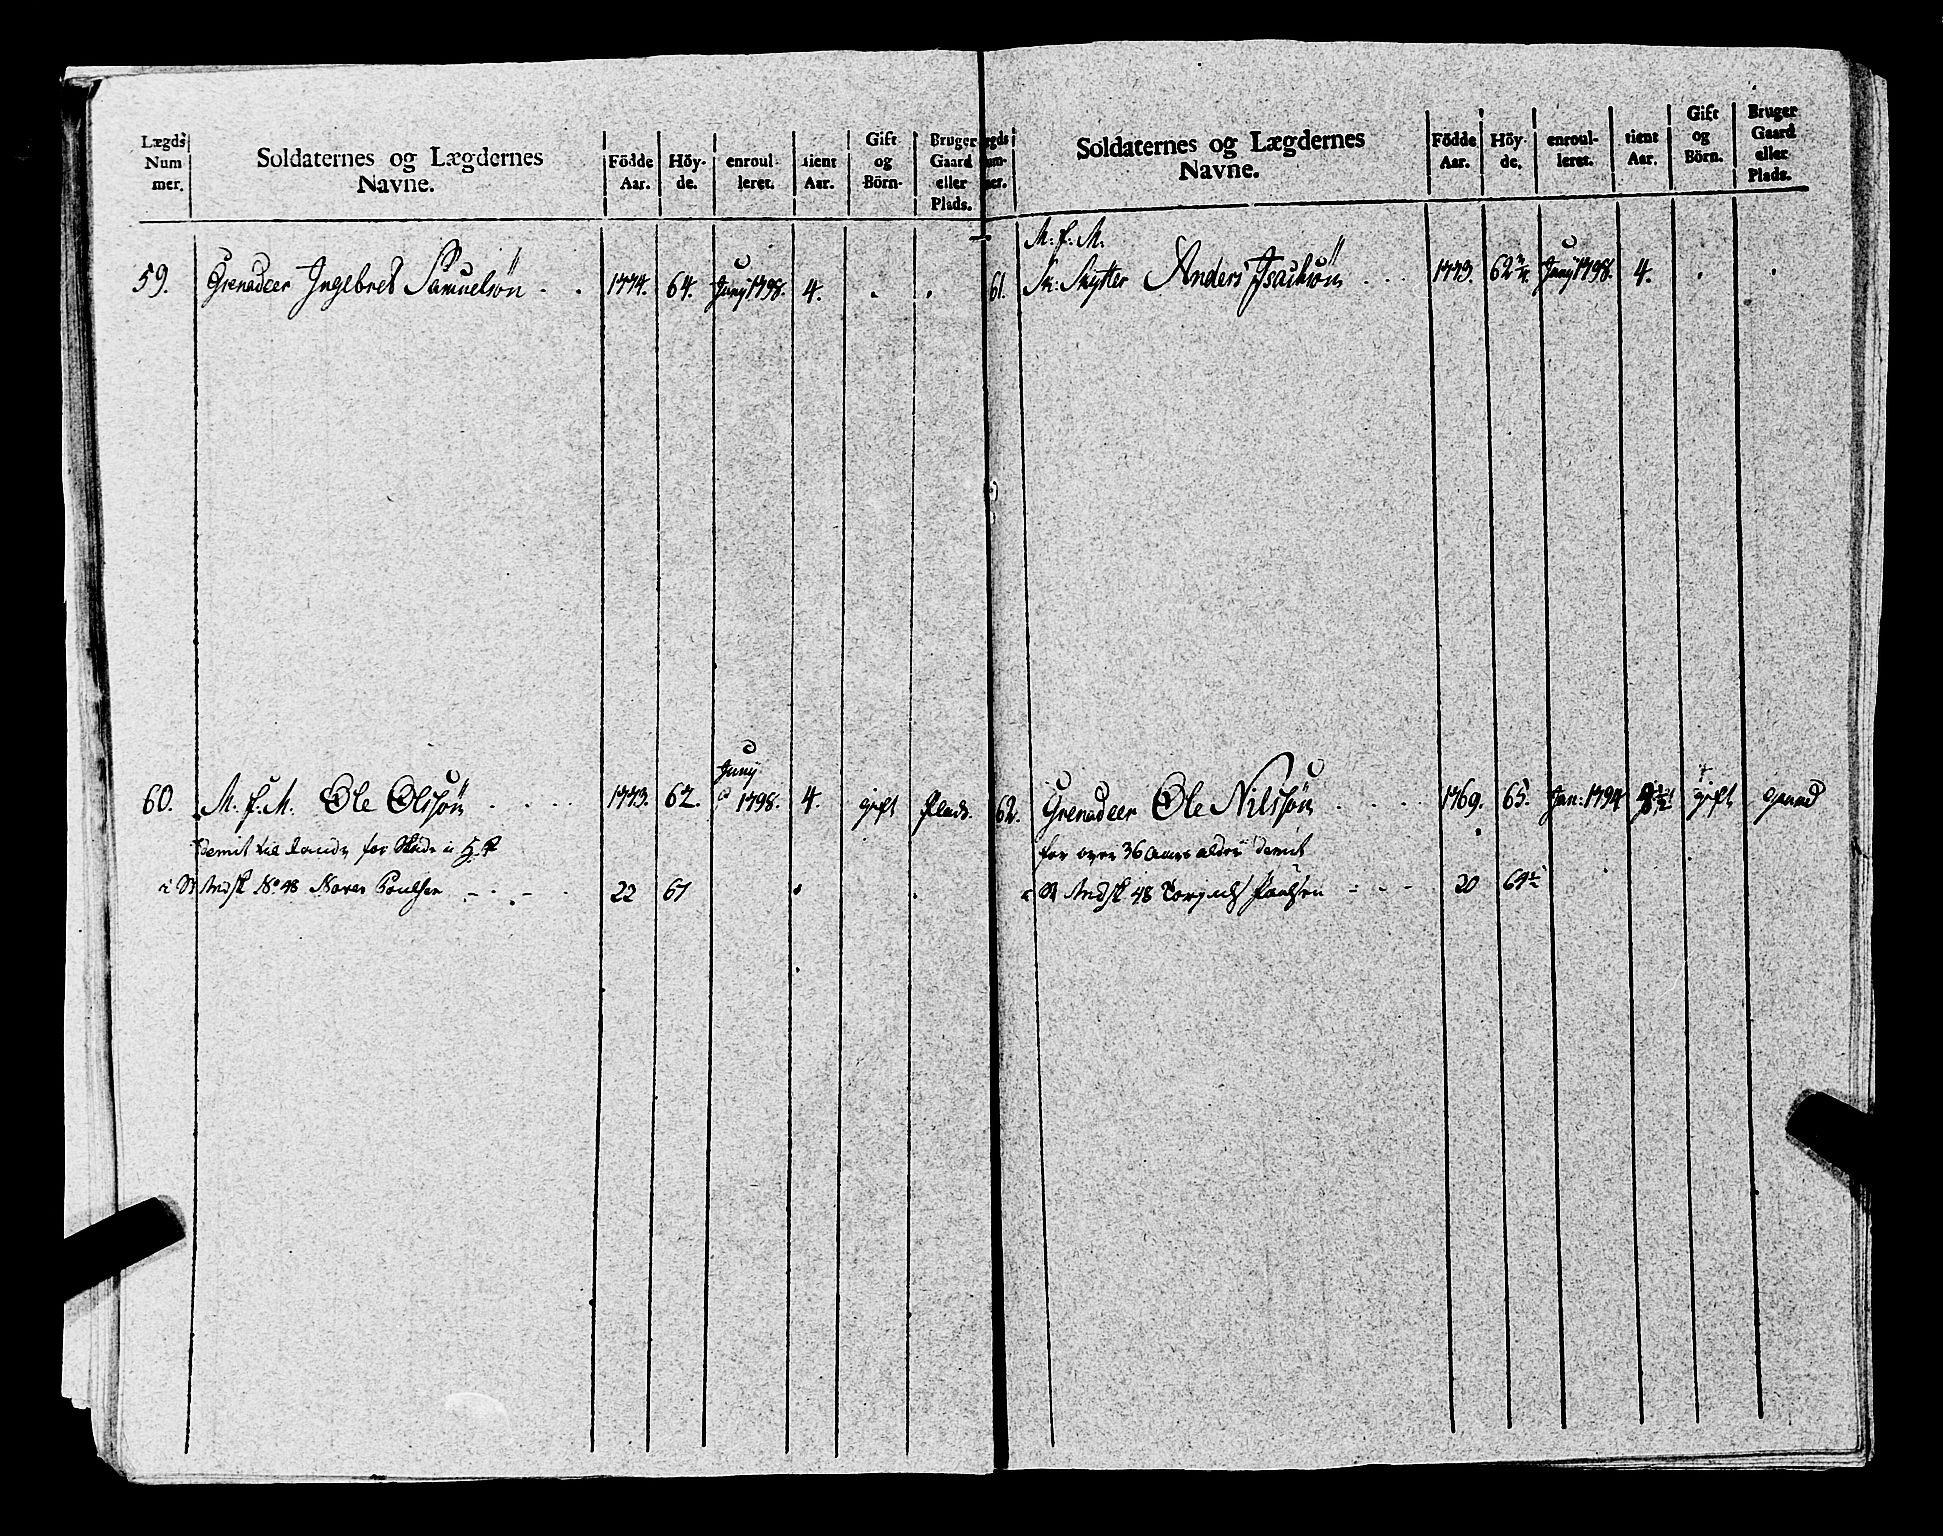 Lægds Num mer. Soldaternes og Lægdernes Navne. Födde Aar. Höy-de. enroul-leret. tient Aar. Gift og Börn. Bruger Gaard eller Plads.
59. Grenadeer Ingebret Samuelsøn . . 1774. 64. Juny 1798. 4. . .
60. M. f. M. Ole Olssøn . . . . 1773. 62. Juny 1798. 4. gift Plads.
No 48 22 67
Soldaternes og Lægdernes Navne. Födde Aar. Höy-de. enroul-leret. tient Aar. Gift og Börn. Bruger Gaard eller Plads.
M. f. M.
61. Sk: Skytter Anders Isachsøn . . . 1773. 62 Juny 1798. 4. . .
62. Grenadeer Ole Nilssøn . . . . 1769. 65. Jan: 1794 gift gaard
for over 36 aars alder demit
48 20 64½